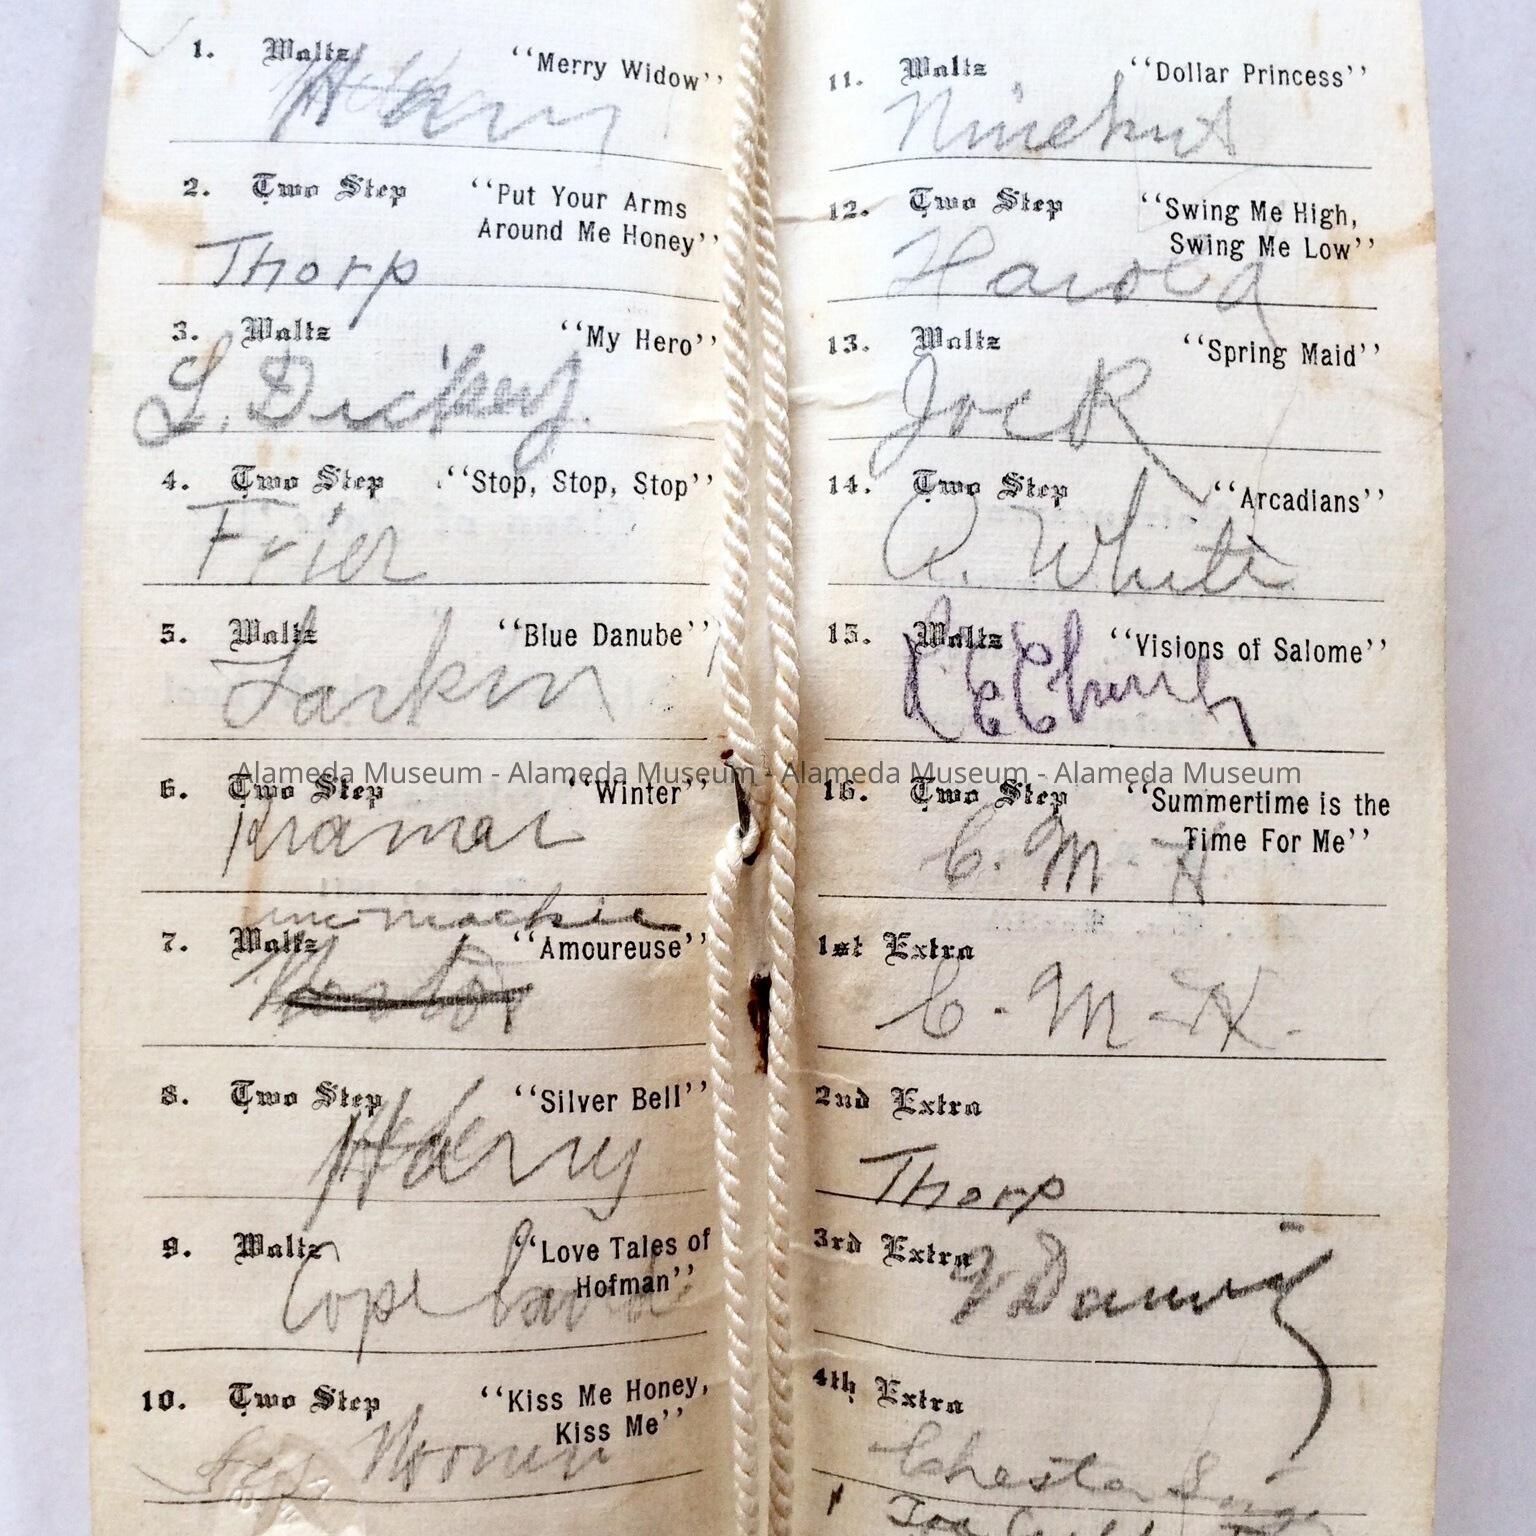 1. Waltz "Merry Widow"
Harry
2. Two Step "Put Your Arms
Around Me Honey"
Thorp
3. Waltz "My Hero"
L. Dickey.
4. Two Step "Stop, Stop, Stop"
Frier
5. Waltz "Blue Danube"
Larkin
6. Two Step "Winter"
Kramer
7. Waltz "Amoureuse"
8. Two Step "Silver Bell"
Harry
9. Waltz "Love Tales of
Hofman"
Cope
10. Two Step "Kiss Me Honey,
Kiss Me"
11. Waltz "Dollar Princess"
12. Two Step "Swing Me High,
Swing Me Low"
Harold
13. Waltz "Spring Maid"
Joe R
14. Two Step "Arcadians"
A. White
15. Waltz "Visions of Salome"
Church
16. Two Step "Summertime is the
Time For Me"
C. M. H
1st Extra
C. M. H.
2nd Extra
Thorp
3rd Extra
4th Extra
Chester
Alameda Museum - Alameda Museum - Alameda Museum - Alameda Museum